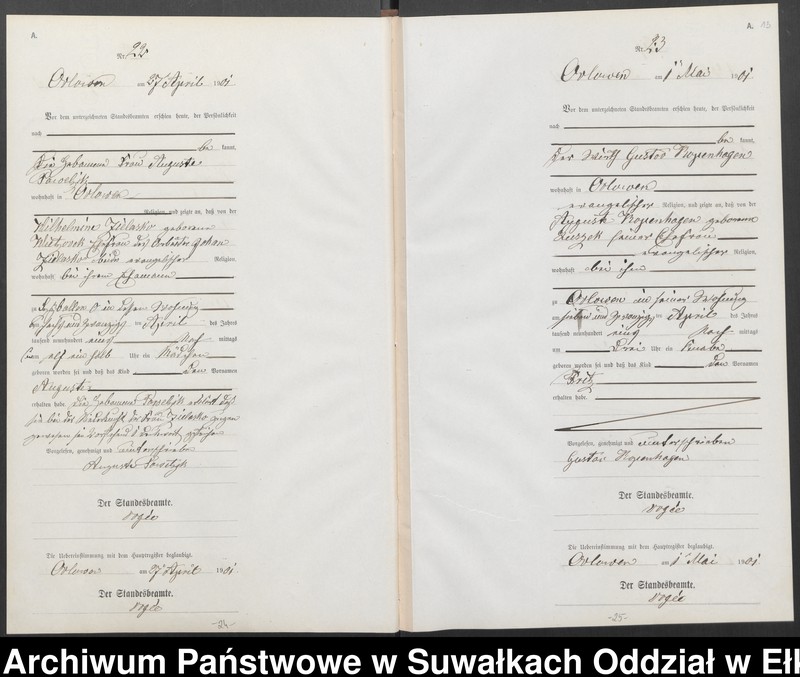 A.
Nr. 22
Orlowen am 27 April 1901
Vor dem unterzeichneten Standesbeamten erschien heute, der Persönlichkeit
nach
be kannt,
Die Hebamme Frau Auguste
wohnhaft in Orlowen
Religion, und zeigte an, daß von der
Wilhelmine Zielasko geborene
Ehefrau des
Zielasko beide evangelischer Religion,
wohnhaft bei ihrem Ehemann
in seiner Wohnung
am sechs und zwanzigsten April des Jahres
tausend neunhundert eins Nach mittags
um elf ein halb Uhr ein Mädchen
geboren worden sei und daß das Kind den Vornamen
Auguste
erhalten habe. Die Hebamme erklärt daß
sie bei der Niederkunft der Frau Zielasko zugen
gewesen sei
Vorgelesen, genehmigt und unterschrieben
Auguste
Der Standesbeamte.
Vogée
Die Uebereinstimmung mit dem Hauptregister beglaubigt.
Orlowen am 27 April 1901
Der Standesbeamte.
Vogée
-24-
A. 13
Nr. 23
Orlowen am 1 Mai 1901
Vor dem unterzeichneten Standesbeamten erschien heute, der Persönlichkeit
nach
be kannt,
Der Wirth Gustav Kopenhagen
wohnhaft in Orlowen
evangelischer Religion, und zeigte an, daß von der
Auguste Kopenhagen geborenen
seiner Ehefrau
evangelischer Religion,
wohnhaft bei ihm
zu Orlowen in seiner Wohnung
am sieben und zwanzigsten April des Jahres
tausend neunhundert eins Nach mittags
um drei Uhr ein Knabe
geboren worden sei und daß das Kind den Vornamen
Fritz
erhalten habe.
Vorgelesen, genehmigt und unterschrieben
Gustav Kopenhagen
Der Standesbeamte.
Vogée
Die Uebereinstimmung mit dem Hauptregister beglaubigt.
Orlowen am 1 Mai 1901
Der Standesbeamte.
Vogée
-25-
Archiwum Państwowe w Suwałkach Oddział w Ełk